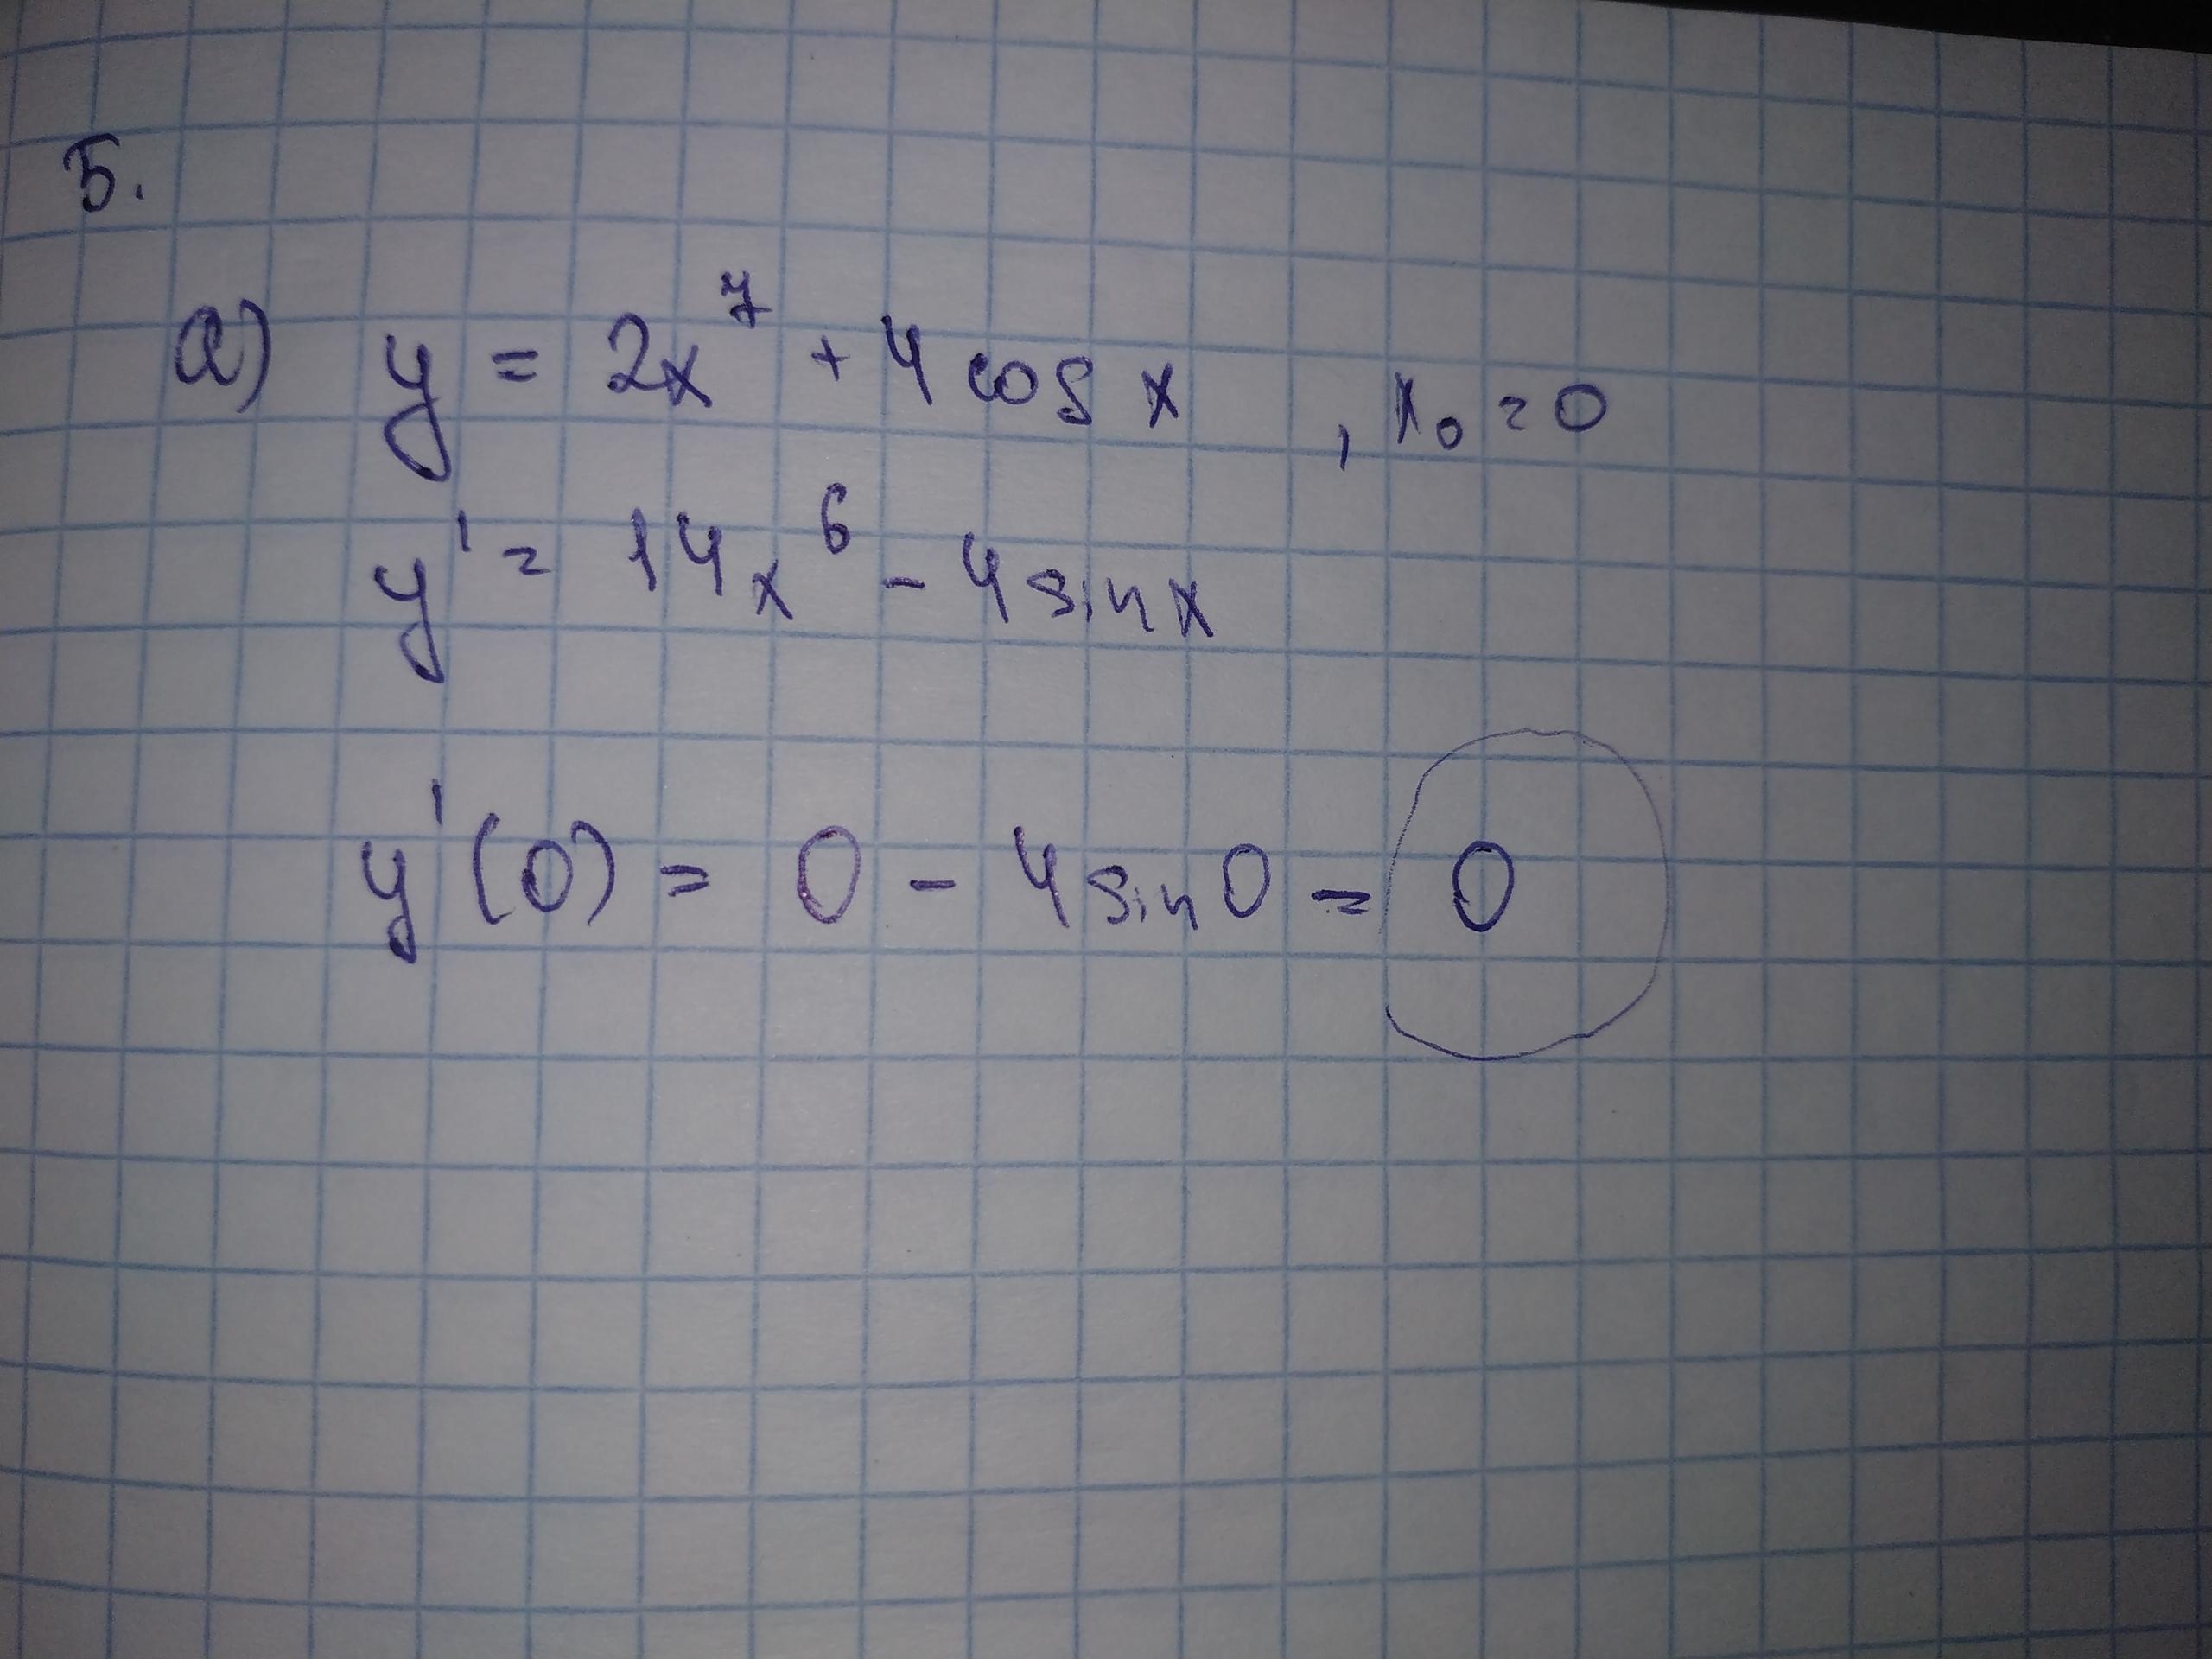 5.
a) y = 2x⁷ + 4 cos x , x₀ = 0
y' = 14x⁶ - 4 sin x
y'(0) = 0 - 4 sin 0 = 0